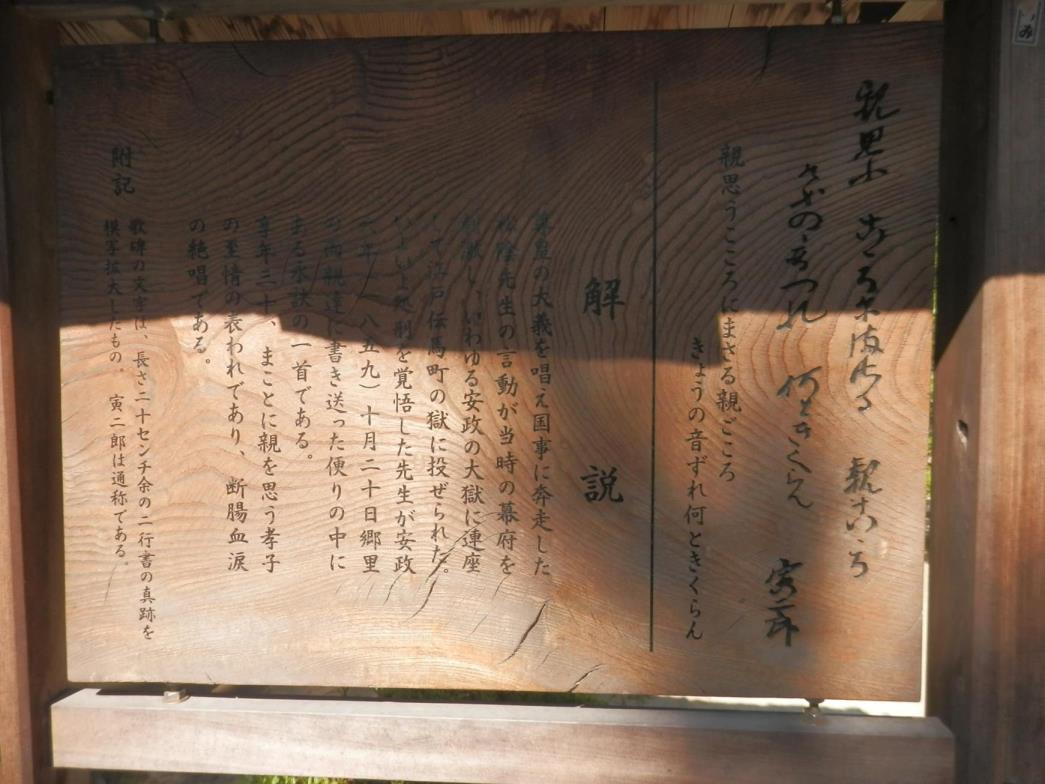 親思ふ こころにまさる 親ごころ
けふの音つれ 何ときくらん 寅二郎
親思うこころにまさる親ごころ
きょうの音ずれ何ときくらん
解説
尊皇の大義を唱え国事に奔走した
松陰先生の言動が当時の幕府を
刺激し、いわゆる安政の大獄に連座
して江戸伝馬町の獄に投ぜられた。
いよいよ処刑を覚悟した先生が安政
六年(一八五九)十月二十日郷里
の両親達に書き送った便りの中に
ある永訣の一首である。
享年三十、まことに親を思う孝子
の至情の表われであり、断腸血涙
の絶唱である。
附記
歌碑の文字は、長さ二十センチ余の二行書の真跡を
模写拡大したもの。 寅二郎は通称である。